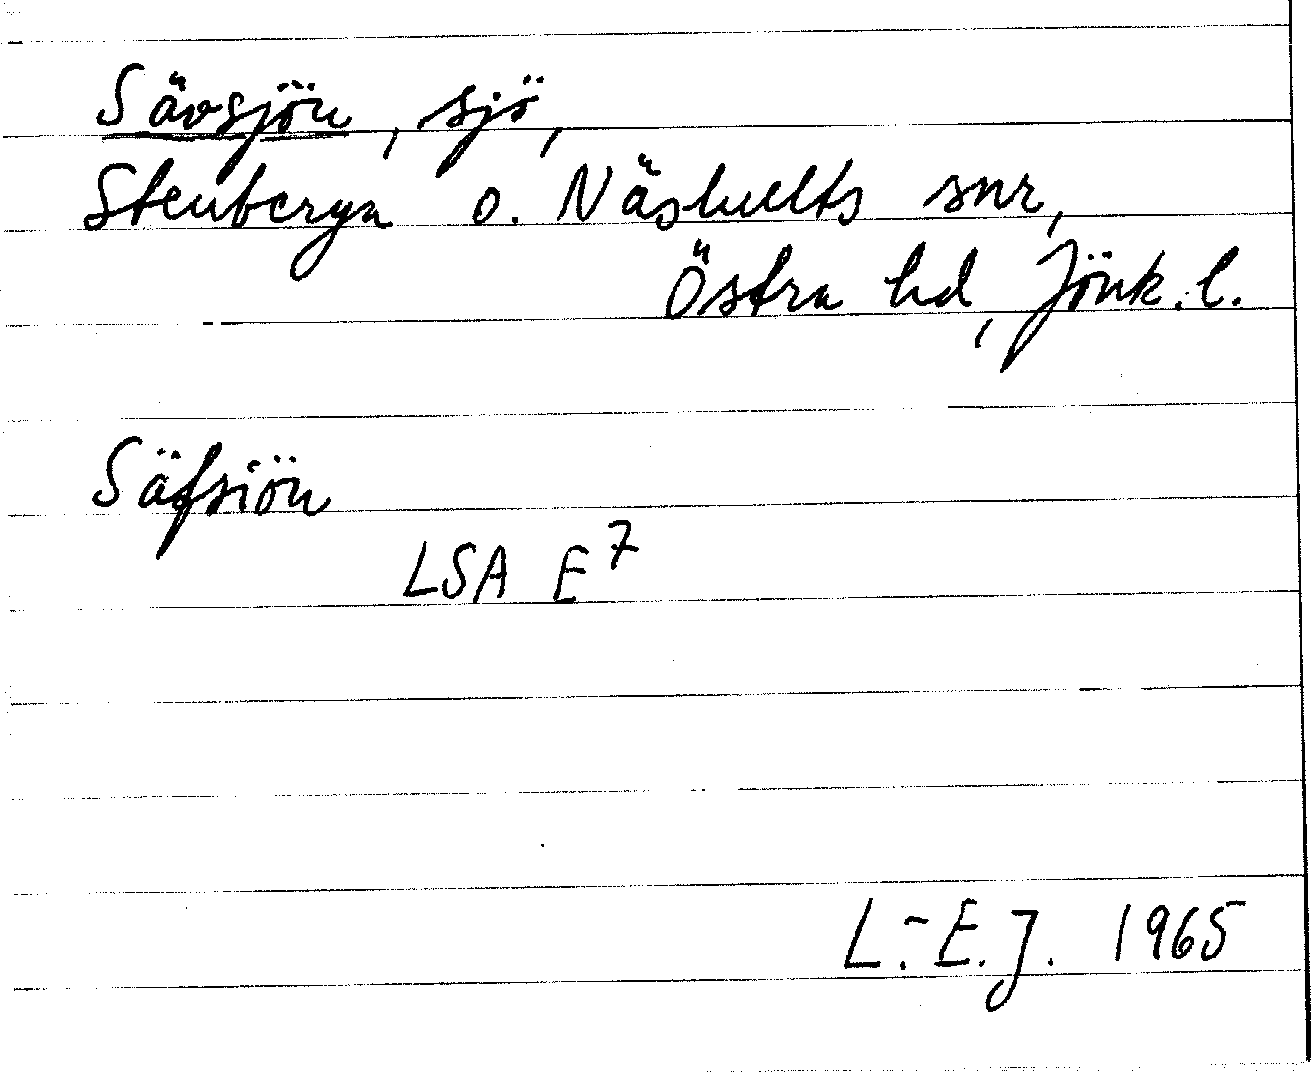 Sävsjön, sjö,
Stenberga o. Näshults snr,
Östra hd, Jönk. l.
Säfsiön
LSA E7
L.-E.J. 1965